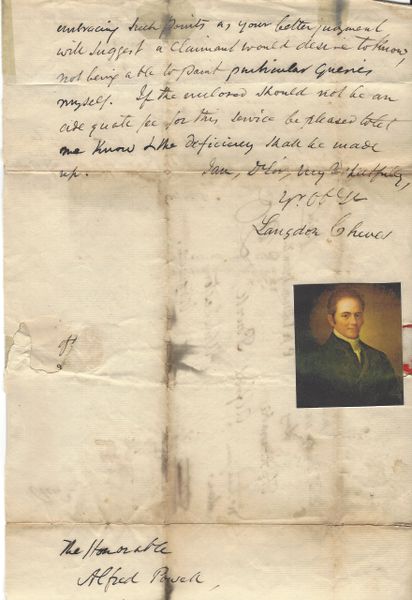 embracing such points as your better judgment
will suggest a Claimant would desire to know,
not being able to point particular queries
myself. If the enclosed should not be an
adequate fee for this service be pleased to let
me know & the deficiency shall be made
up. I am, D Sir, very
Yr. Ob. St
Langdon Cheves
The Honorable
Alfred Powell,